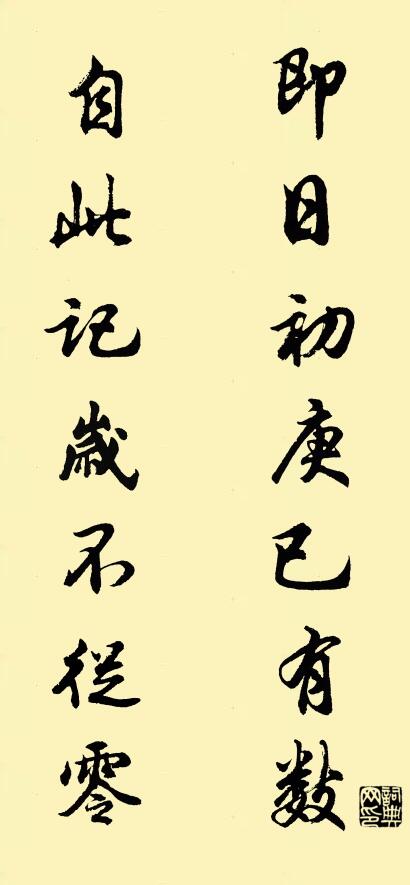 即日初庚已有数
自此记岁不從零
詞典网名